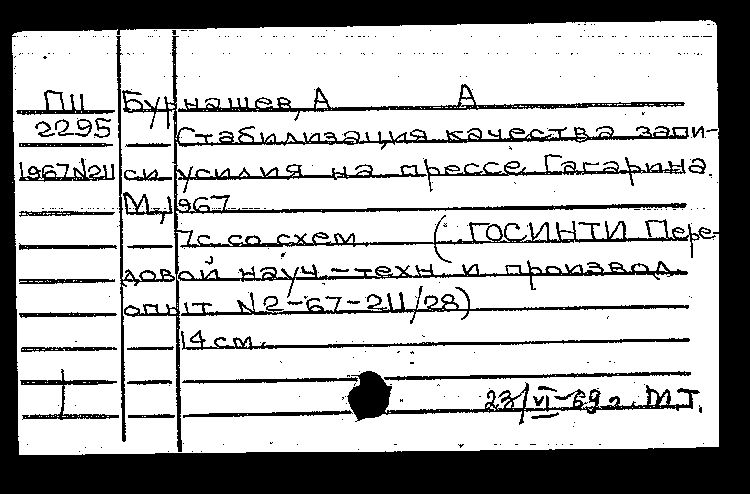 ПII Бурнашев, А А
2295 Стабилизация качества запи-
1967N211 си усилия на прессе Гагарина.
М., 1967
7с. со схем. (ГОСИНТИ Пере-
довой науч.-техн. и производ.
опыт. N2-67-211/28)
14 см.
23/VI-69г. М.Т.